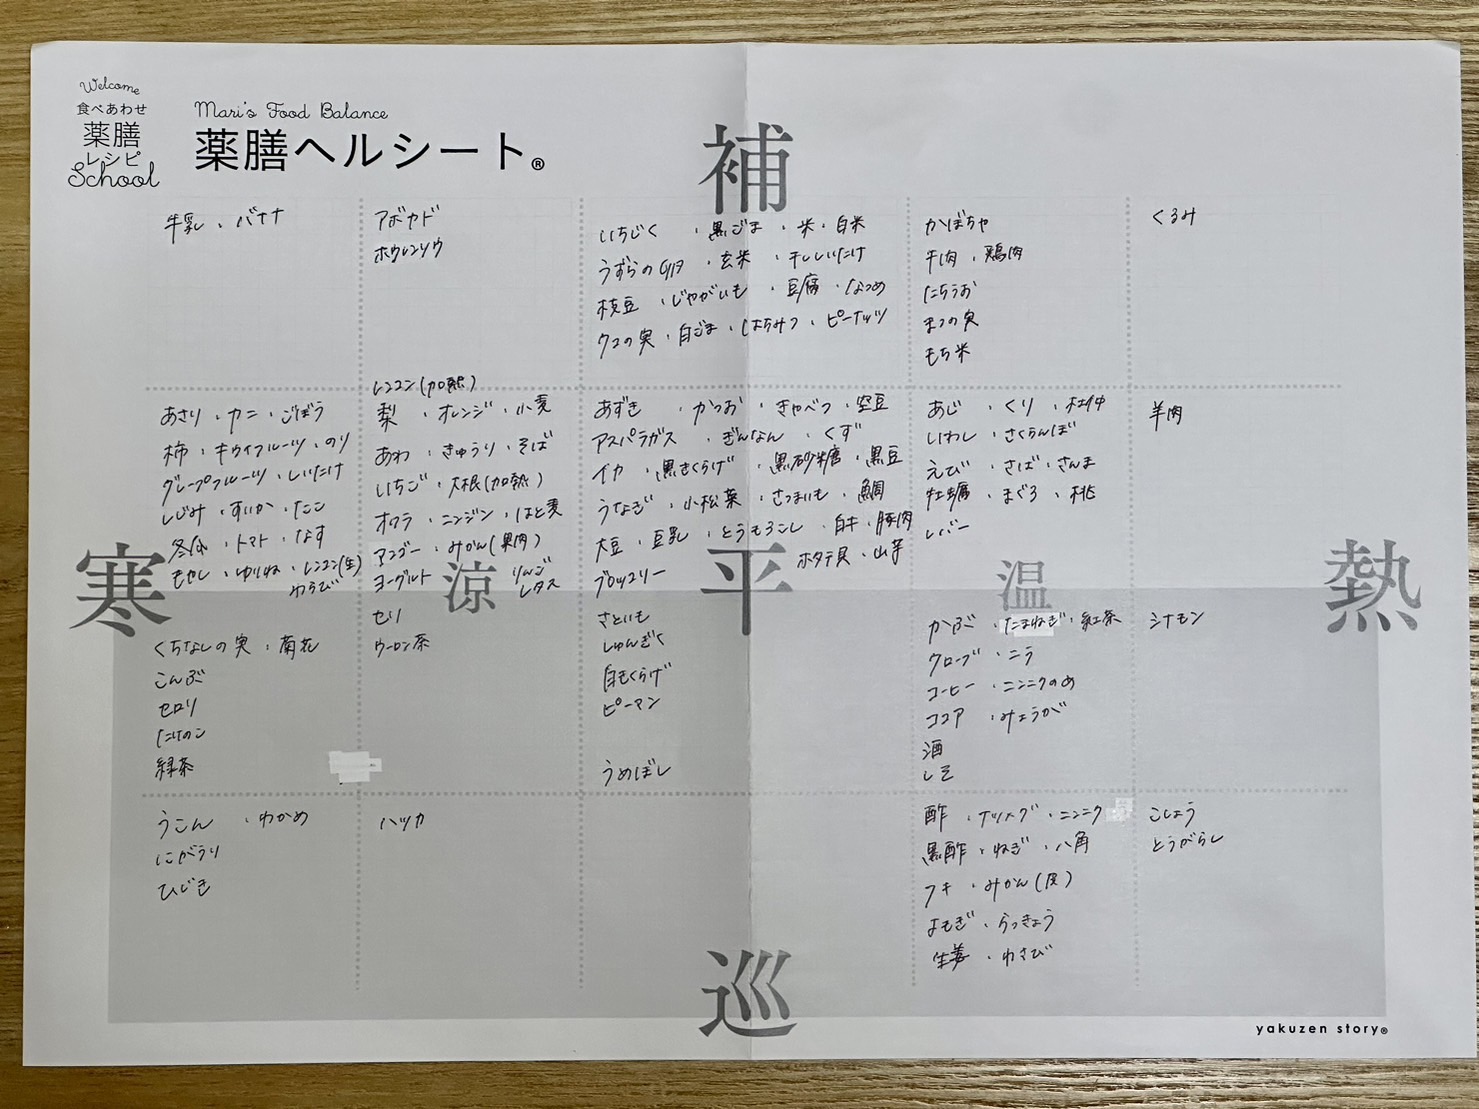 Welcome
食べあわせ
薬膳
レシピ
School
Mari's Food Balance
薬膳ヘルシート®
補
牛乳、バナナ
アボカド
ホウレンソウ
いちじく、黒ごま、米、白米
うずらの卵、玄米、干しいたけ
枝豆、じゃがいも、豆腐、なつめ
クコの実、白ごま、はちみつ、ピーナッツ
かぼちゃ
牛肉、鶏肉
たちうお
まつの実
もち米
くるみ
あさり、カニ、ごぼう
柿、キウイフルーツ、のり
グレープフルーツ、しいたけ
しじみ、すいか、たこ
冬瓜、トマト、なす
もやし、ゆりね、レンコン(生)
わらび
レンコン(加熱)
梨、オレンジ、小麦
あわ、きゅうり、そば
いちご、大根(加熱)
オクラ、ニンジン、はと麦
マンゴー、みかん(果肉)
ヨーグルト
りんご
レタス
あずき、かつお、きゃべつ、空豆
アスパラガス、ぎんなん、くず
イカ、黒きくらげ、黒砂糖、黒豆
うなぎ、小松菜、さつまいも、鯛
大豆、豆乳、とうもろこし、白キ、豚肉
ホタテ貝、山芋
ブロッコリー
あじ、くり、杜仲
いわし、さくらんぼ
えび、さば、さんま
牡蠣、まぐろ、桃
レバー
羊肉
寒
涼
平
温
熱
くちなしの実、菊花
こんぶ
セロリ
たけのこ
緑茶
セリ
ウーロン茶
さといも
しゅんぎく
白もくらげ
ピーマン
うめぼし
かぶ、たまねぎ、紅茶
クローブ、ニラ
コーヒー、ニンニクのめ
ココア、みょうが
酒
しそ
シナモン
うこん、わかめ
にがうり
ひじき
ハッカ
酢、ナツメグ、ニンニク
黒酢、ねぎ、八角
フキ、みかん(皮)
よもぎ、らっきょう
生姜、わさび
こしょう
とうがらし
巡
yakuzen story®